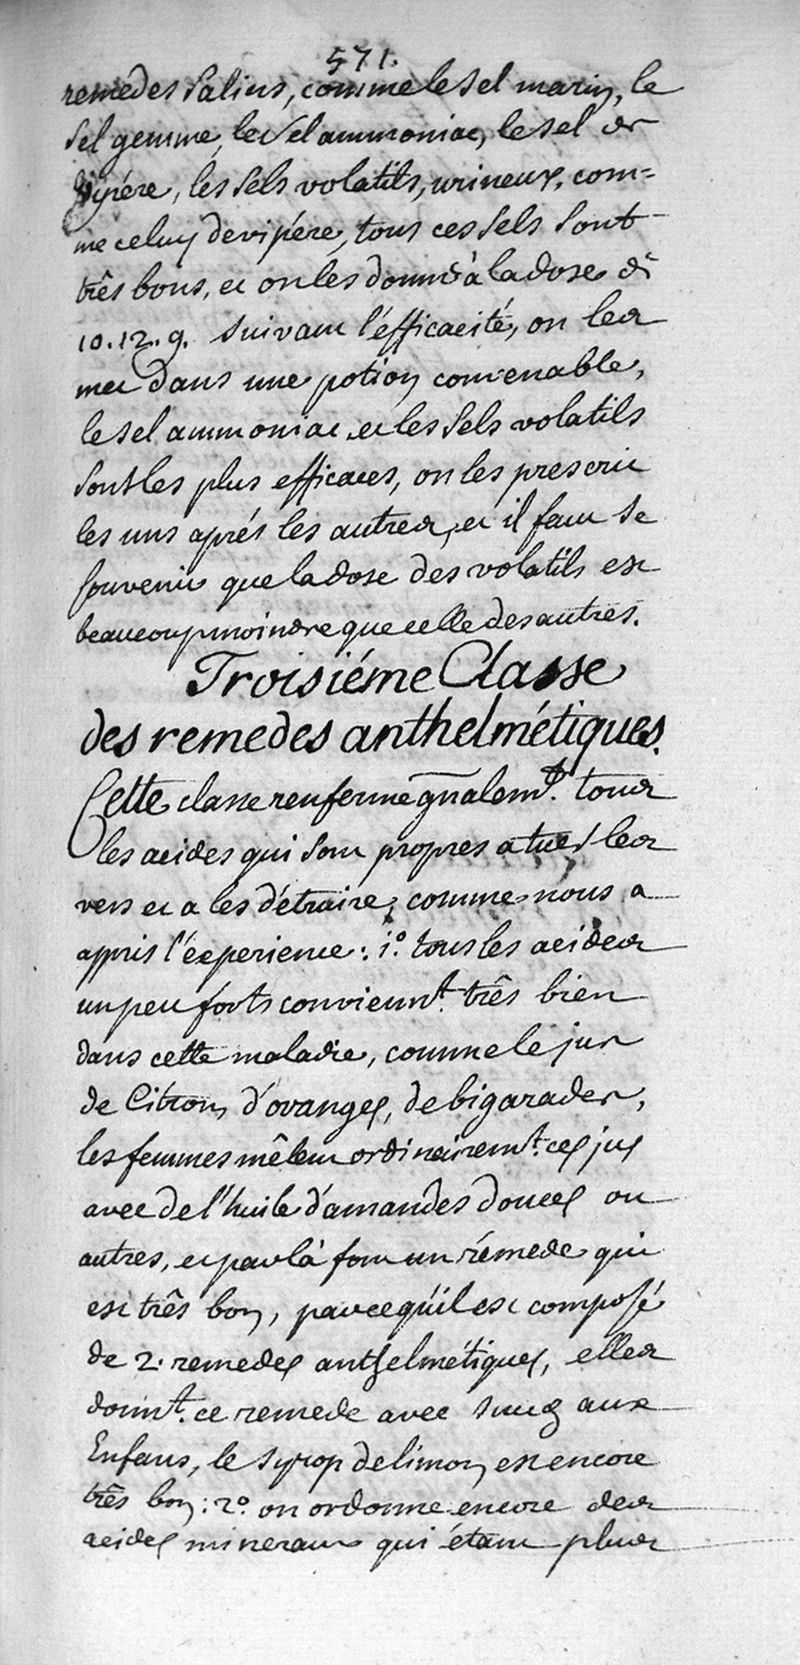 571.
remédes Salins, comme le Sel marin, le
Sel gemme, le Sel ammoniac, le sel de
vipére, les Sels volatils, urineux, com=
me celuy de vipére, tous ces Sels Sont
três bons, et on les donne à la dose de
10. 12. g. Suivant l'éfficacité, on les
met dans une potion convenable,
le Sel ammoniac et les Sels volatils
Sont les plus efficaces, on les prescrit
les uns aprés les autres, et il faut se
souvenir que la dose des volatils est
beaucoup moindre que celle des autres.
Troisiéme Classe
des remedes anthelmétiques.
Cette classe renferme gñalemt. tous
les acides qui Sont propres a tuer les
vers et a les détruire, comme nous a
appris l'éxperience: 1.° tous les acides
un peu forts conviennt. três bien
dans cette maladie, comme le jus
de Citron, d'oranges, de bigarades,
les femmes mêlent ordinairemt. ces jus
avec de l'huile d'amandes douces ou
autres, et par là font un rémede qui
est três bon, parcequ'il est composé
de 2. remedes anthelmétiques, elles
donnt. ce remede avec succ aux
Enfans, le Syrop de limon est encore
três bon: 2.° on ordonne encore des
acides mineraux qui étant plus